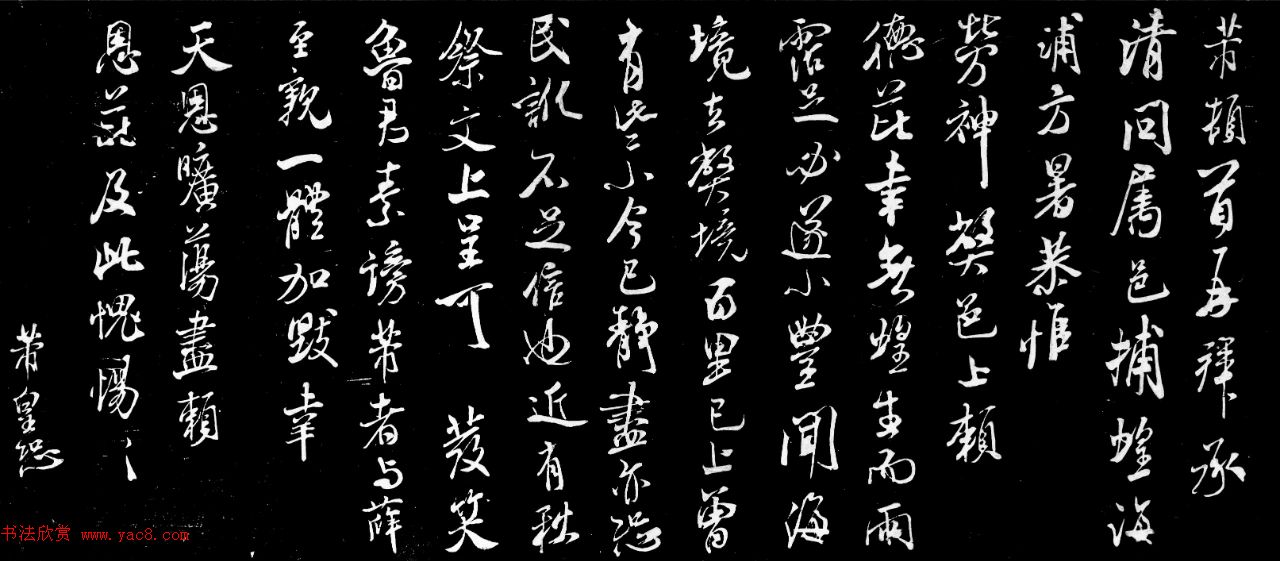 芾頓首再拜承
清問屬邑捕蝗海
浦方暑恭惟
勞神弊邑上賴
德芘幸無蝗生而雨
霑足必遂小豐聞海
境去弊境百里已上曾
有些小今已靜盡亦恐
民訛不足信也近有秩
祭文上呈可 發笑
魯君素謗芾者與薛
至親一體加毀幸
天恩曠蕩盡賴
恩芘及此愧惕
芾皇恐
书法欣赏 www.yac8.com